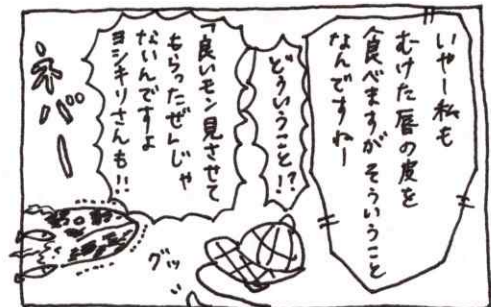 いやー私も
むけた唇の皮を
食べますがそういうこと
なんですねー
どういうこと!?
「良いモン見させて
もらったぜ」じゃ
ないんですよ
ヨシキリさんも!!
ネバー
グッ